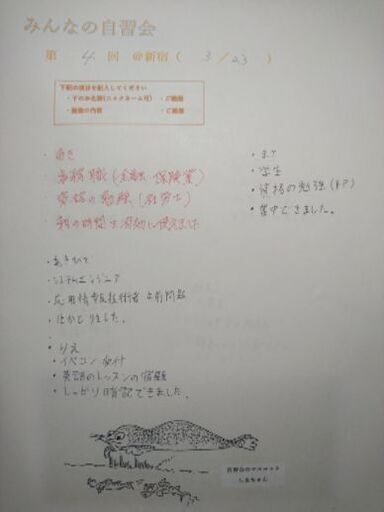 みんなの自習会
第 4 回 @新宿 ( 3 / 23 )
下記の項目を記入してください
・下のお名前(ニックネーム可) ・ご職種
・勉強の内容 ・ご感想
・あき
・事務職(金融・保険業)
・資格の勉強(社労士)
・朝の時間を有効に使えました
・まア
・学生
・資格の勉強
・集中できました。
・あきひで
・システムエンジニア
・応用情報技術者 午前問題
・はかどりました。
・りえ
・イベント
・英語のレッスンの宿題
・しっかり暗記できました。
自習会のマスコット
しまちゃん